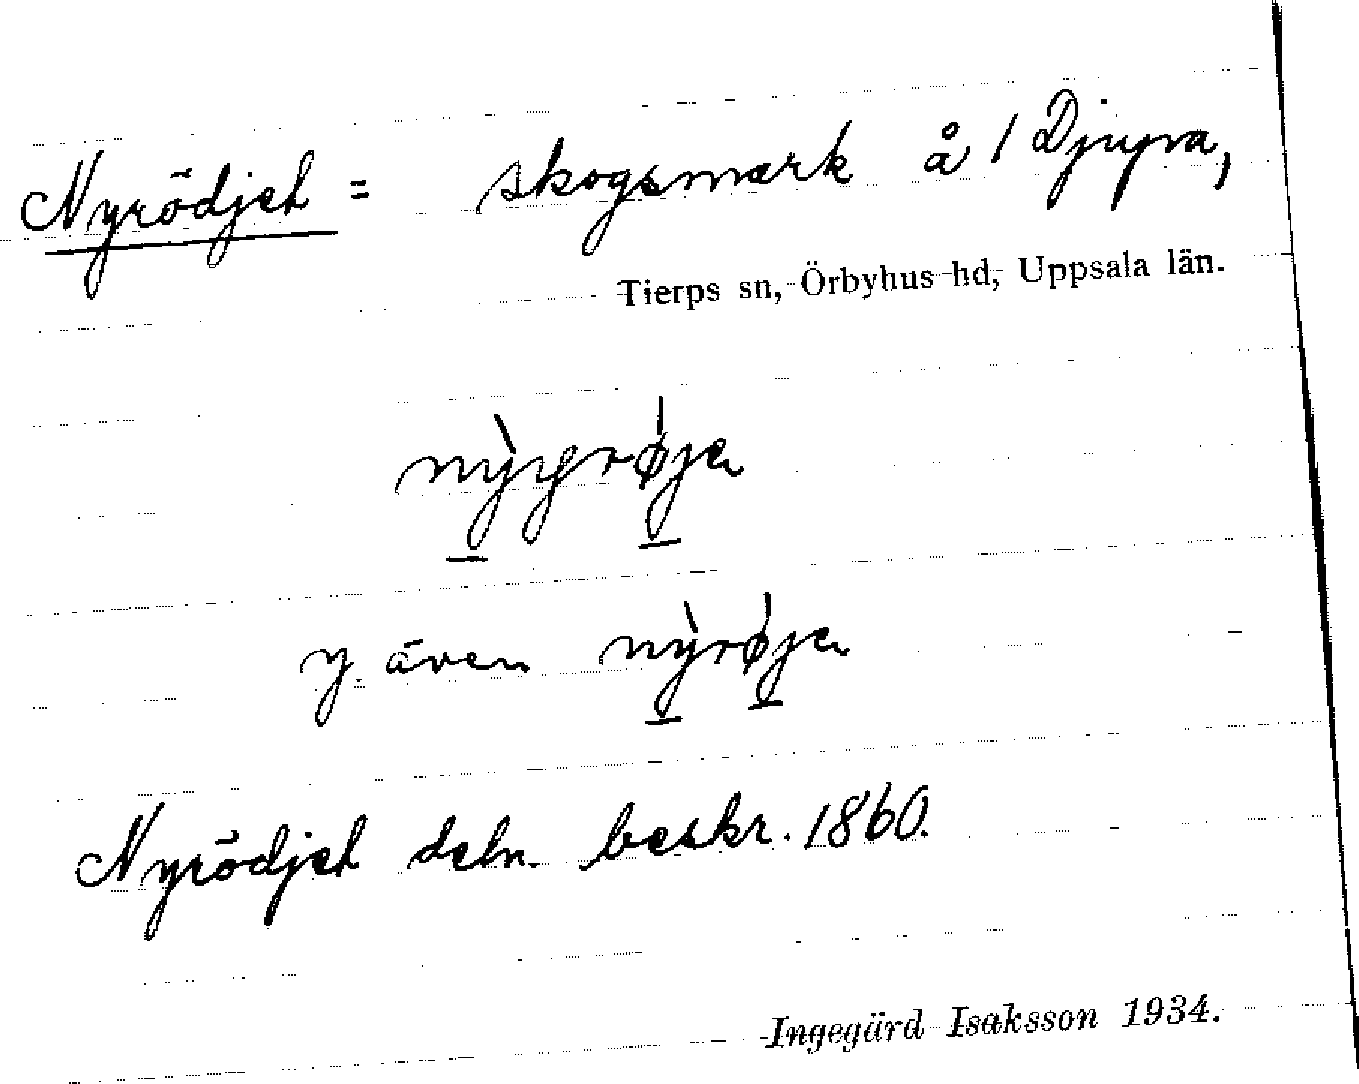 Nyrödjet = skogsmark å / Djupa,
Tierps sn, Örbyhus hd, Uppsala län.
y. även
Nyrödjet deln. beskr. 1860.
Ingegärd Isaksson 1934.